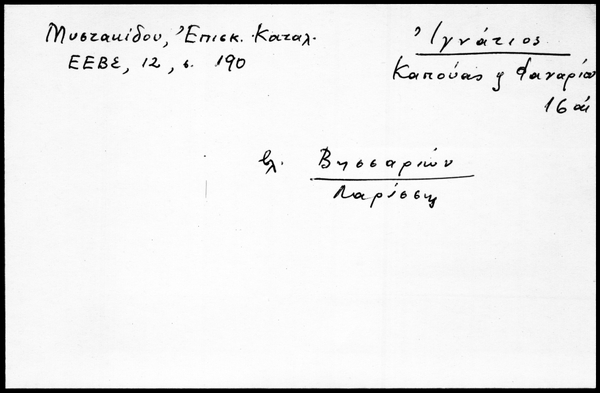 Μυστακίδου, Ἐπισκ. Καταλ.
ΕΕΒΣ, 12, σ. 190
Ἰγνάτιος
Καπούας ἤ Φαναρίου
16 αἰ
βλ. Βησσαριών
Λαρίσσης